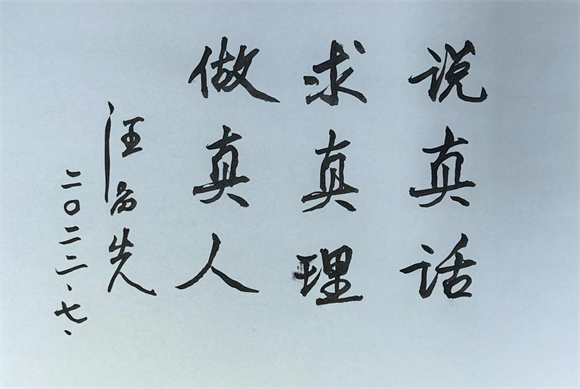 说真话
求真理
做真人
汪名先
二〇二二、七、